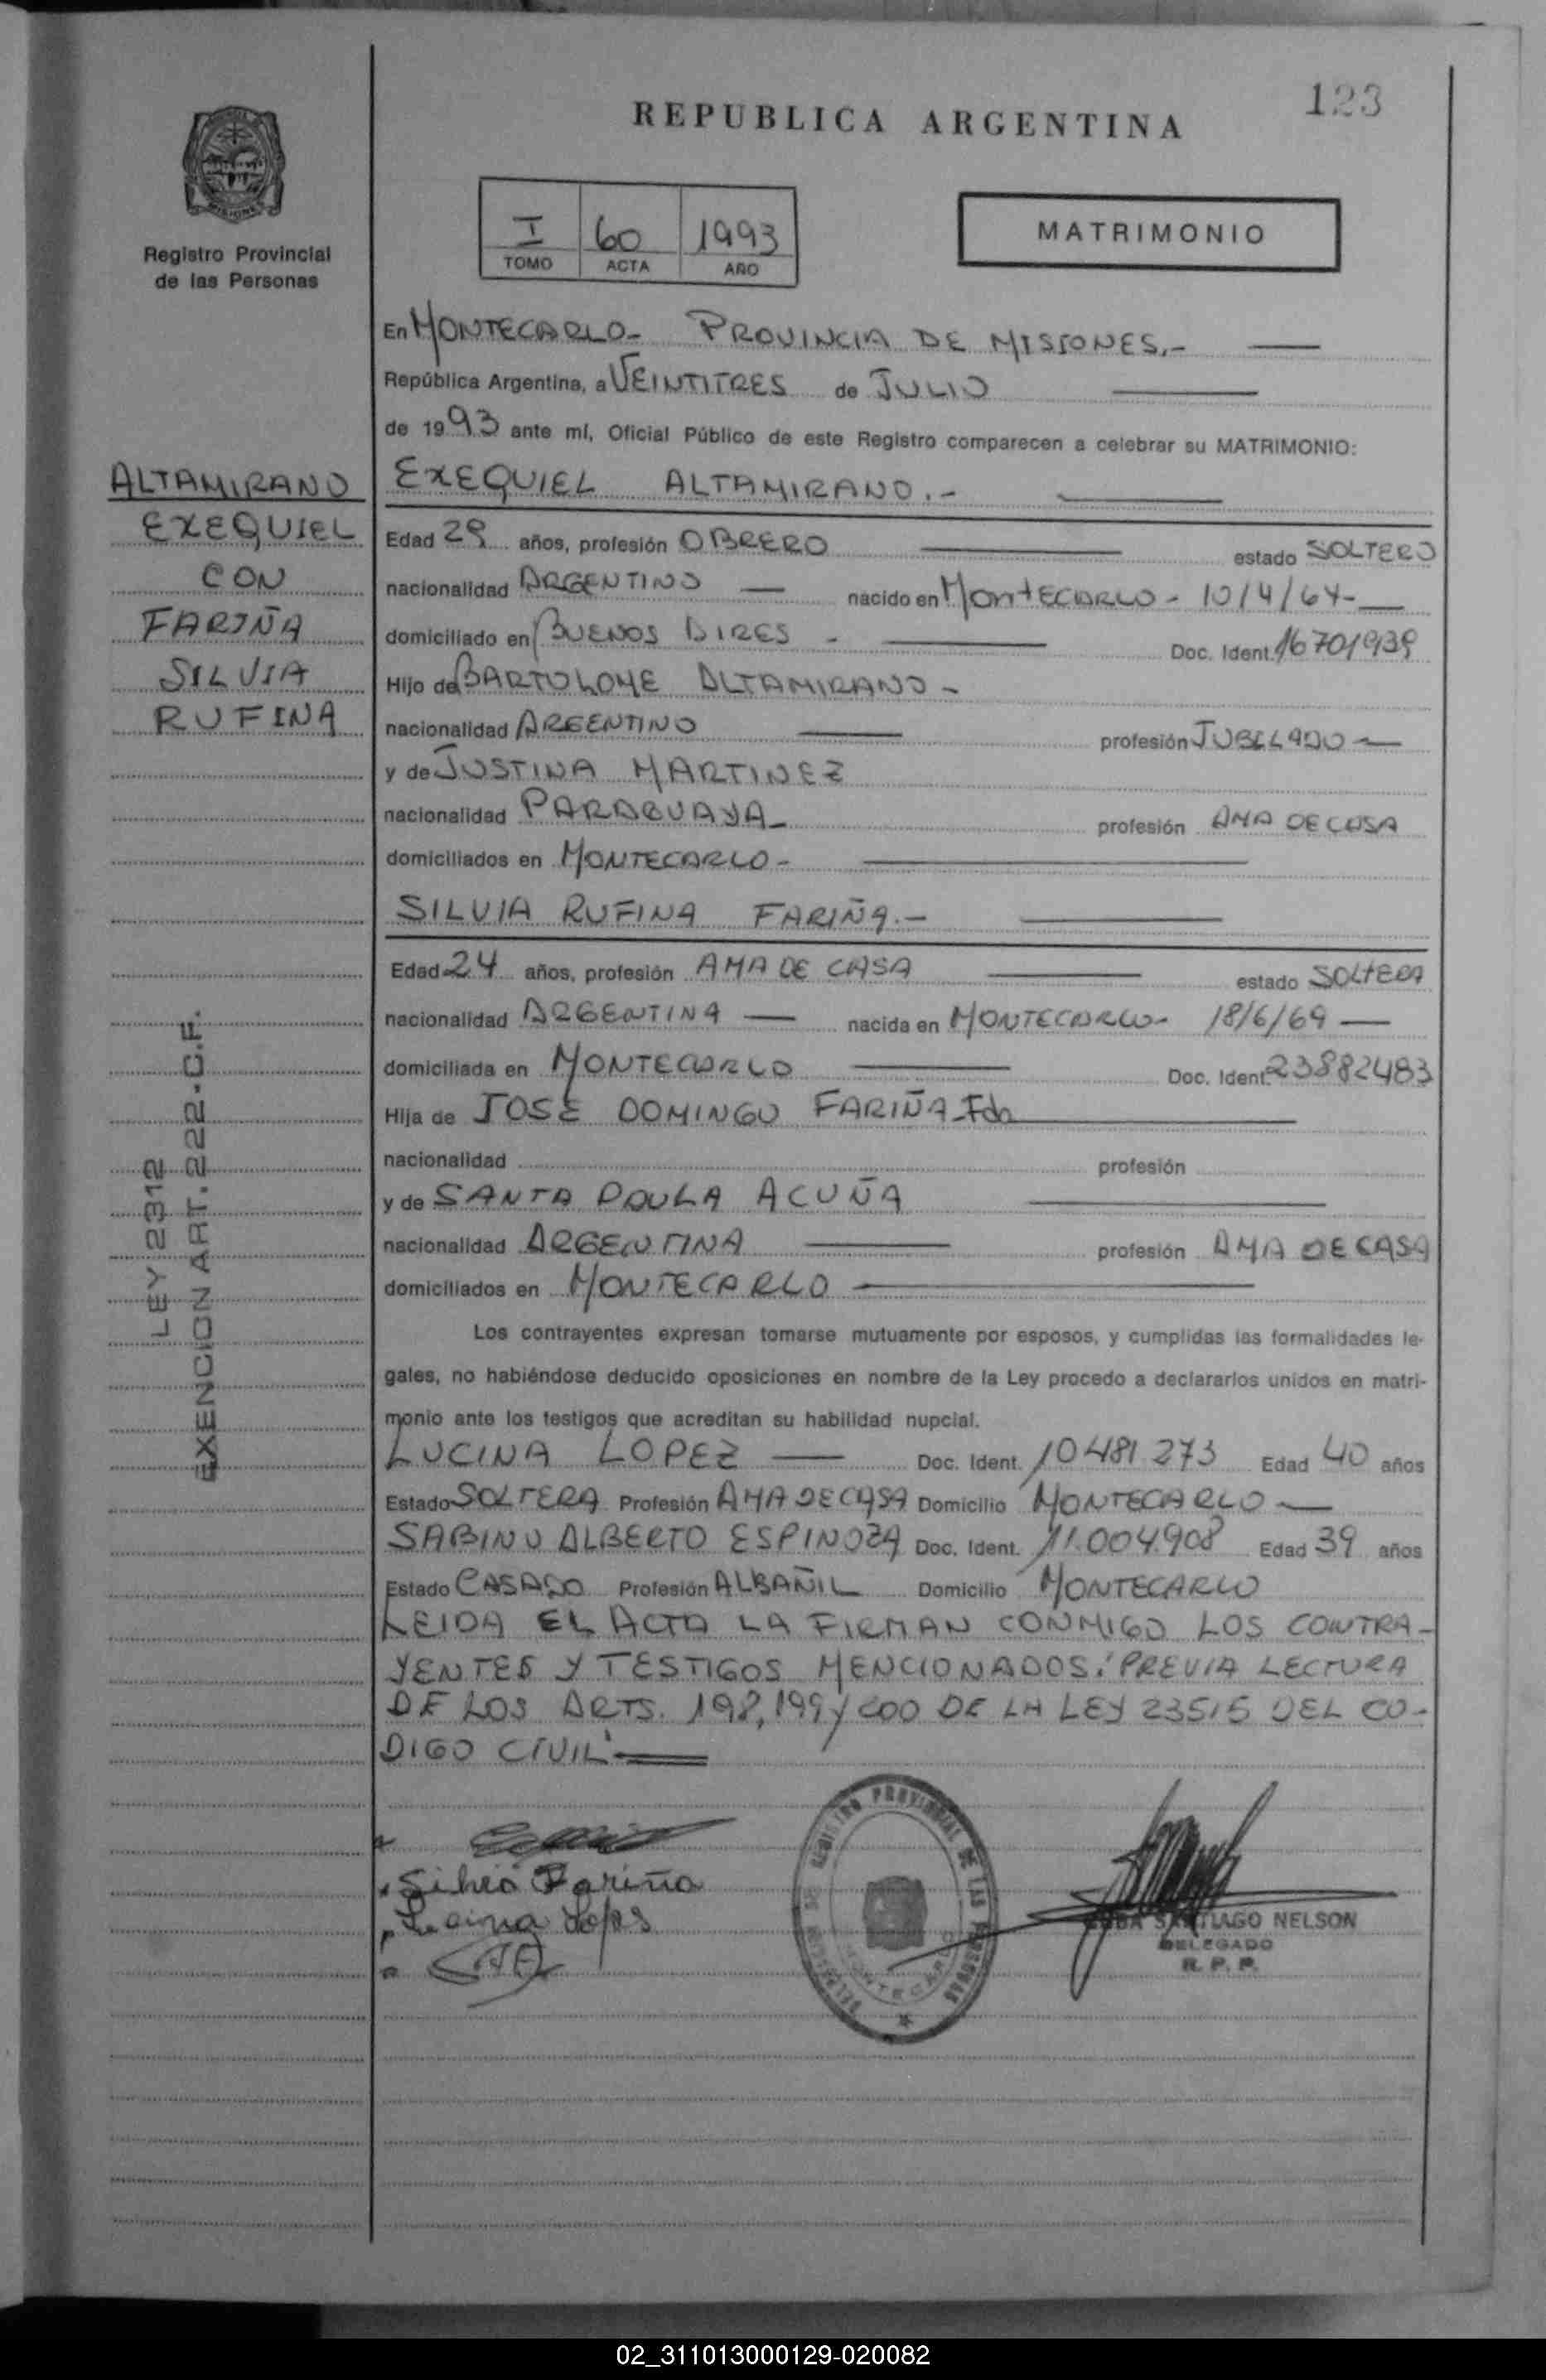 123
REPUBLICA ARGENTINA
MISIONES
Registro Provincial
de las Personas
I 60 1993
TOMO ACTA AÑO
MATRIMONIO
En MONTECARLO- PROVINCIA DE MISIONES.-
República Argentina, a VEINTITRES de JULIO
de 1993 ante mí, Oficial Público de este Registro comparecen a celebrar su MATRIMONIO:
ALTAMIRANO
EXEQUIEL
CON
FARIÑA
SILVIA
RUFINA
LEY 2312
EXENCION ART. 222-C.F.
EXEQUIEL ALTAMIRANO.-
Edad 29 años, profesión OBRERO estado SOLTERO
nacionalidad ARGENTINO nacido en MONTECARLO - 10/4/64-
domiciliado en BUENOS AIRES - Doc. Ident. 16701939
Hijo de BARTOLOME ALTAMIRANO-
nacionalidad ARGENTINO profesión JUBILADO
y de JUSTINA MARTINEZ
nacionalidad PARAGUAYA- profesión AMA DE CASA
domiciliados en MONTECARLO-
SILVIA RUFINA FARIÑA.-
Edad 24 años, profesión AMA DE CASA estado SOLTERA
nacionalidad ARGENTINA nacida en MONTECARLO- 18/6/69
domiciliada en MONTECARLO Doc. Ident. 23882483
Hija de JOSE DOMINGO FARIÑA-Fdo
nacionalidad profesión
y de SANTA PAULA ACUÑA
nacionalidad ARGENTINA profesión AMA DE CASA
domiciliados en MONTECARLO
Los contrayentes expresan tomarse mutuamente por esposos, y cumplidas las formalidades le-
gales, no habiéndose deducido oposiciones en nombre de la Ley procedo a declararlos unidos en matri-
monio ante los testigos que acreditan su habilidad nupcial.
LUCINA LOPEZ Doc. Ident. 10481273 Edad 40 años
Estado SOLTERA Profesión AMA DE CASA Domicilio MONTECARLO
SABINO ALBERTO ESPINOZA Doc. Ident. 11.004.908 Edad 39 años
Estado CASADO Profesión ALBAÑIL Domicilio MONTECARLO
LEIDA EL ACTA LA FIRMAN CONMIGO LOS CONTRA-
YENTES Y TESTIGOS MENCIONADOS: PREVIA LECTURA
DE LOS ARTS. 198, 199 y 200 DE LA LEY 23515 DEL CO-
DIGO CIVIL
Silvia Fariña
Lucina Lopes
REGISTRO PROVINCIAL DE LAS PERSONAS
MONTECARLO
SANTIAGO NELSON
DELEGADO
R. P. P.
02_311013000129-020082